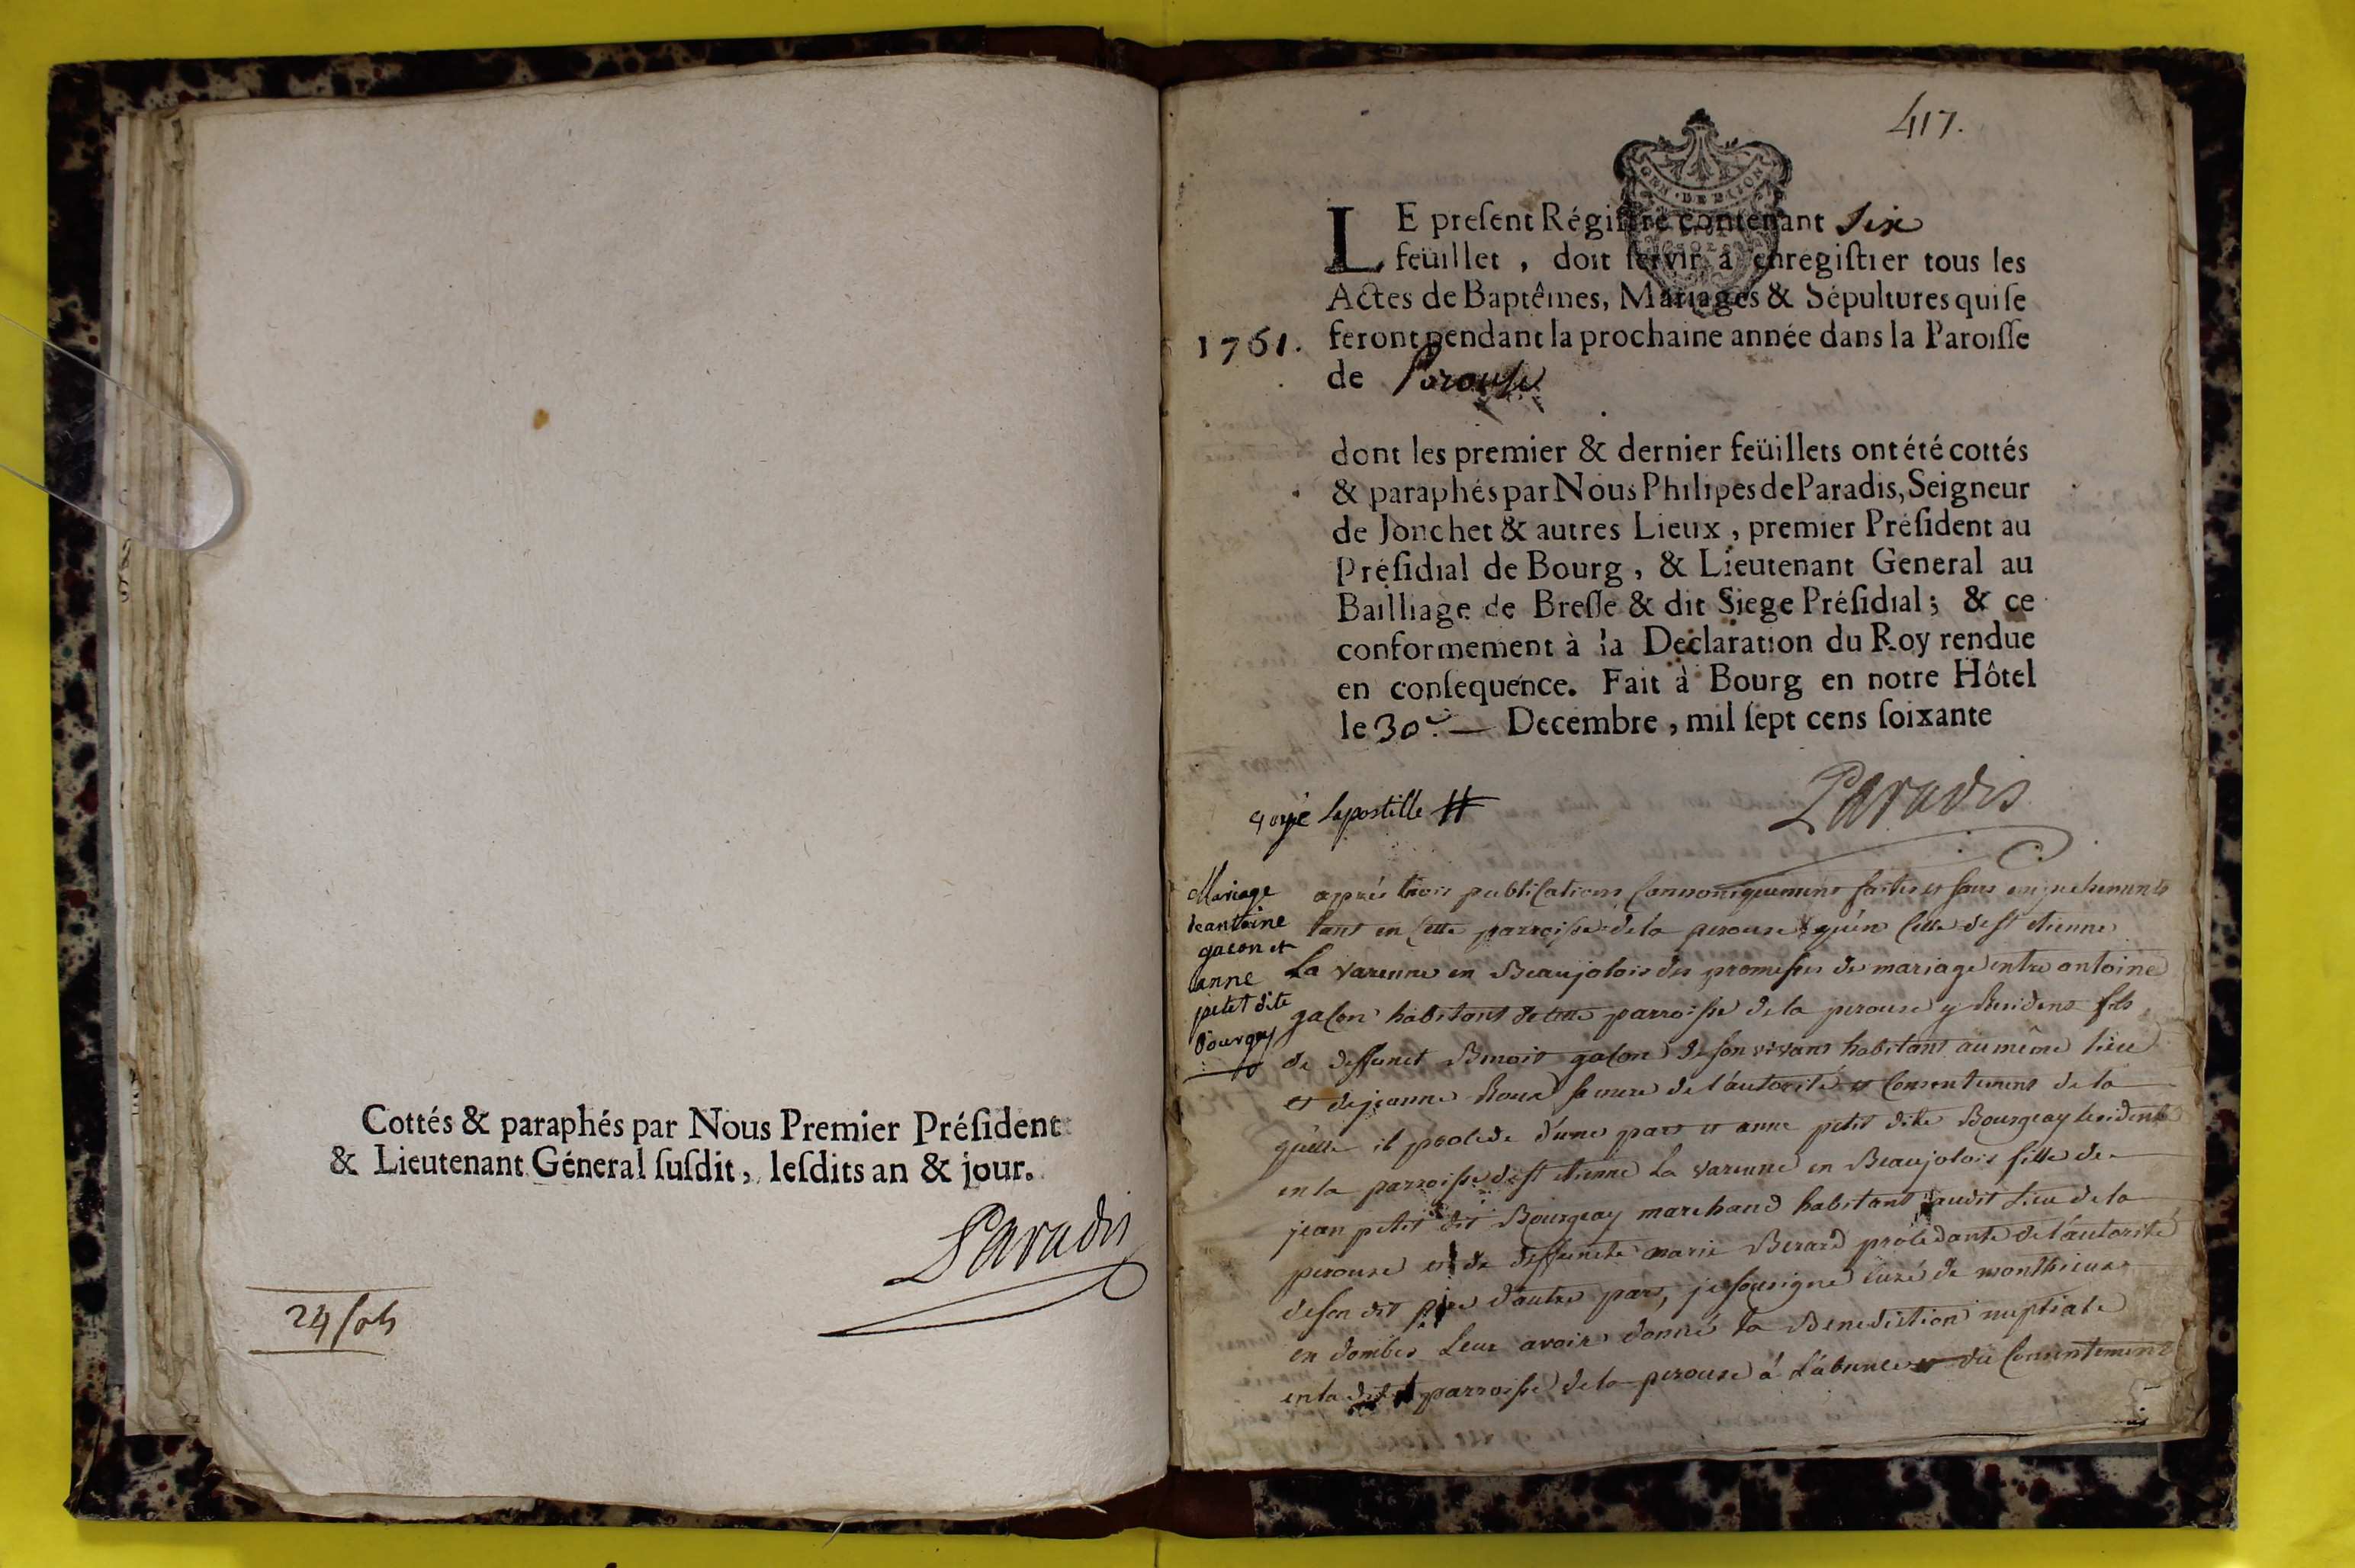 Cottés & paraphés par Nous Premier Préſident
& Lieutenant Géneral ſuſdit, leſdits an & jour.
Paradis
24 ſols
417.
GEN · DE DIJON
LE preſent Régiſtre contenant six
feüillet, doit ſervir à enregiſtrer tous les
Actes de Baptêmes, Mariages & Sépultures qui ſe
1761. feront pendant la prochaine année dans la Paroiſſe
de Perouse
dont les premier & dernier feüillets ont été cottés
& paraphés par Nous Philipes de Paradis, Seigneur
de Jonchet & autres Lieux, premier Préſident au
Préſidial de Bourg, & Lieutenant General au
Bailliage de Breſſe & dit Siege Préſidial; & ce
conformement à la Declaration du Roy rendue
en conſequence. Fait à Bourg en notre Hôtel
le 30e. — Decembre, mil ſept cens ſoixante
Paradis
lapostille #
Mariage
de antoine
gacon et
anne
petit dite
Bourgay
après trois publications cannoniquement faites et sans empechements
tant en cette parroisse de la perouse # qu'en celle de st etienne
La varenne en Beaujolois des promesses de mariage entre antoine
gacon habitant de cette parroisse de la perouse y residens fils
de deffunct Benoit gacon de son vivant habitant au même lieu
et de jeanne Roux sa mere de l'autorité et consentement de la
quelle il procede d'une part et anne petit dite Bourgeay residente
en la parroisse de st etienne La varenne en Beaujolois fille de
jean petit dit Bourgeay marchand habitant audit lieu de la
perouse et de deffuncte marie Berard procedante de l'autorité
de son dit pere d'autre part, je soussigné curé de monthieux
en dombes leur avoir donné la Benediction nuptiale
en la dite parroisse de la perouse à l'absence et du consentement